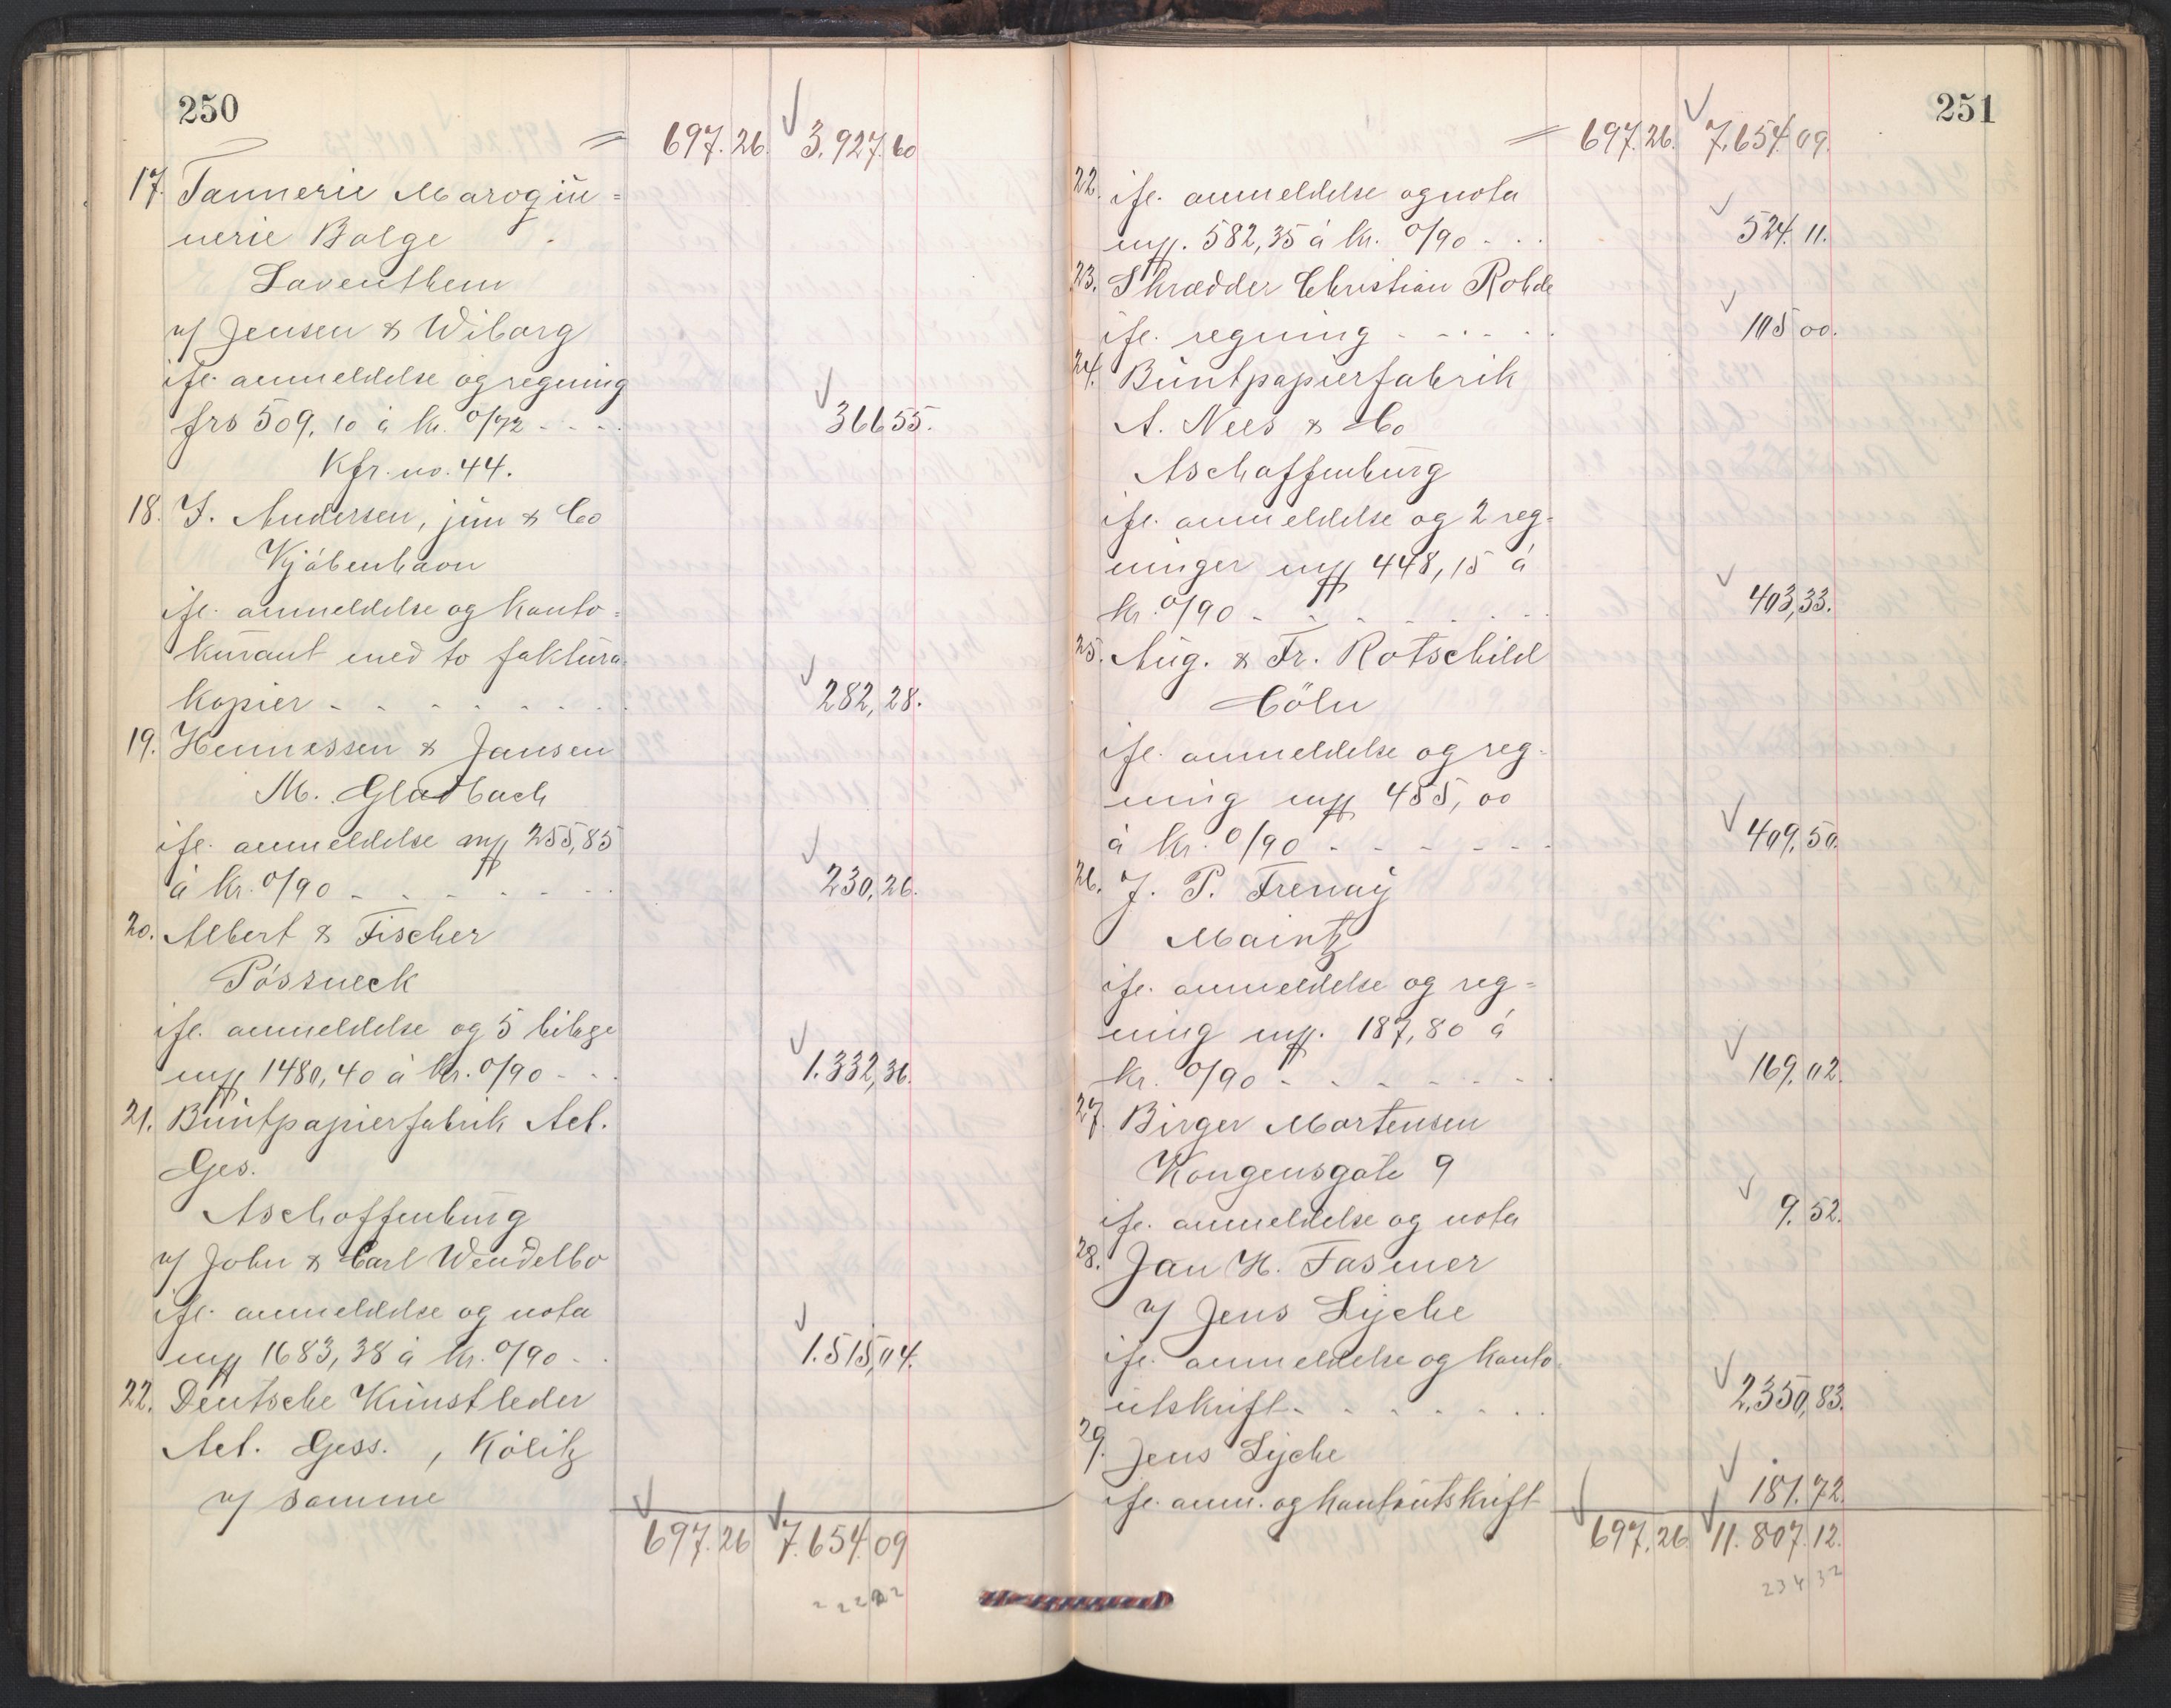 250
= 697.26. 3.927.60
17. Tannerie Maroqui=
nerie Balge
Laventhem
v/ Jensen & Wiborg
ifl. anmeldelse og regning
frs 509,10 à kr. 0/72 - - - 366 55.
Kfr. no. 44.
18. I. Andersen, jun & Co
Kjóbenhavn
ifl. anmeldelse og konto=
kurant med to faktura
kopier - - - - - - - 282,28.
19. Hennessen & Jansen
M. Gladbach
ifl. anmeldelse mfl 255,85
à kr. 0/90 - - - - - - 230,26.
20. Albert & Fischer
Póssneck
ifl. anmeldelse og 5 bilage
mfl 1480,40 à kr. 0/90 - - . 1.332,36.
21. Buntpapierfabrik Act.
Ges.
Aschaffenburg
v/ John & Carl Wendelbo
ifl. anmeldelse og nota
mfl 1683,38 à kr. 0/90 - . 1.515,04.
22. Deutsche Kunstleder
Act. Gess. , Kólitz
v/ samme
697.26 7.654.09
2 2 2 2 2
251
= 697.26. 7.654.09.
22. ifl. anmeldelse og nota
mfl. 582,35 à kr. 0/90 - . . 524.11.
23. Skrædder Christian Rohde
ifl. regning - - - - . 105 00.
24. Buntpapierfabrik
A. Nees & Co
Aschaffenburg
ifl. anmeldelse og 2 reg=
ninger mfl 448,15 à
kr. 0/90 - - - - - - - 403,33.
25. Aug. & Fr. Rotschild
Cöln
ifl. anmeldelse og reg=
ning mfl 455,00
à kr. 0/90 - - - - - - 409,50.
26. J. P. Trenay
Maintz
ifl. anmeldelse og reg=
ning mfl. 187,80 à
kr. 0/90 - - - - - - - 169.02.
27. Birger Mortensen
Kongensgate 9
ifl. anmeldelse og nota 9.52.
28. Jan H. Fasmer
v/ Jens Lyche
ifl. anmeldelse og konto
utskrift - - - - - - - 2.350,83.
29. Jens Lyche
ifl. anm. og kontoutskrift 181.72.
697.26. 11.807.12.
2 3 4 3 2